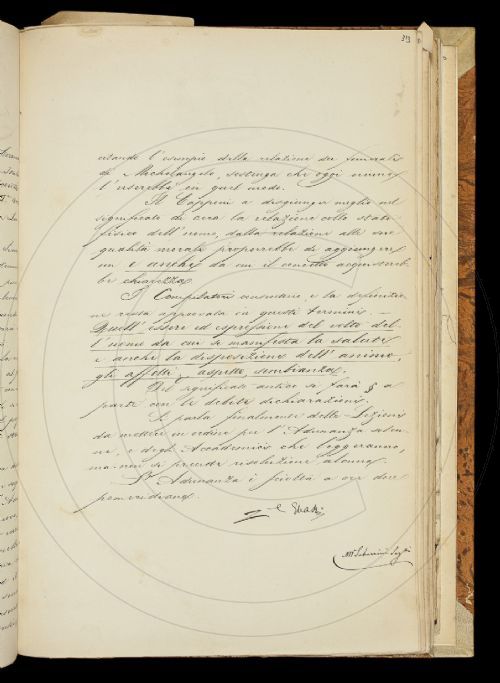 313
citando l'esempio della relazione dei funerali
di Michelangelo, sostenga che oggi niuno
l'userebbe in quel modo.
Il Capponi a disgiunger meglio nel
significato di cera la relazione collo stato
fisico dell'uomo, dalla relazione alle sue
qualità morali proporrebbe di aggiungere
un e anche da cui il concetto acquisterebbe
be chiarezza.
I Compilatori consentono, e la definizione
ne resta approvata in questi termini. —
Quell'essere ed espressione del volto del-
l'uomo da cui si manifesta la salute
e anche la disposizione dell'animo,
gli affetti — aspetto, sembianza.
Del significato antico si farà § a
parte con le debite dichiarazioni.
Si parla finalmente delle Lezioni
da mettere in ordine per l'Adunanza solen-
ne, e degli Accademici che leggeranno,
ma non si prende risoluzione alcuna.
L'Adunanza è sciolta a ore due
pomeridiane.